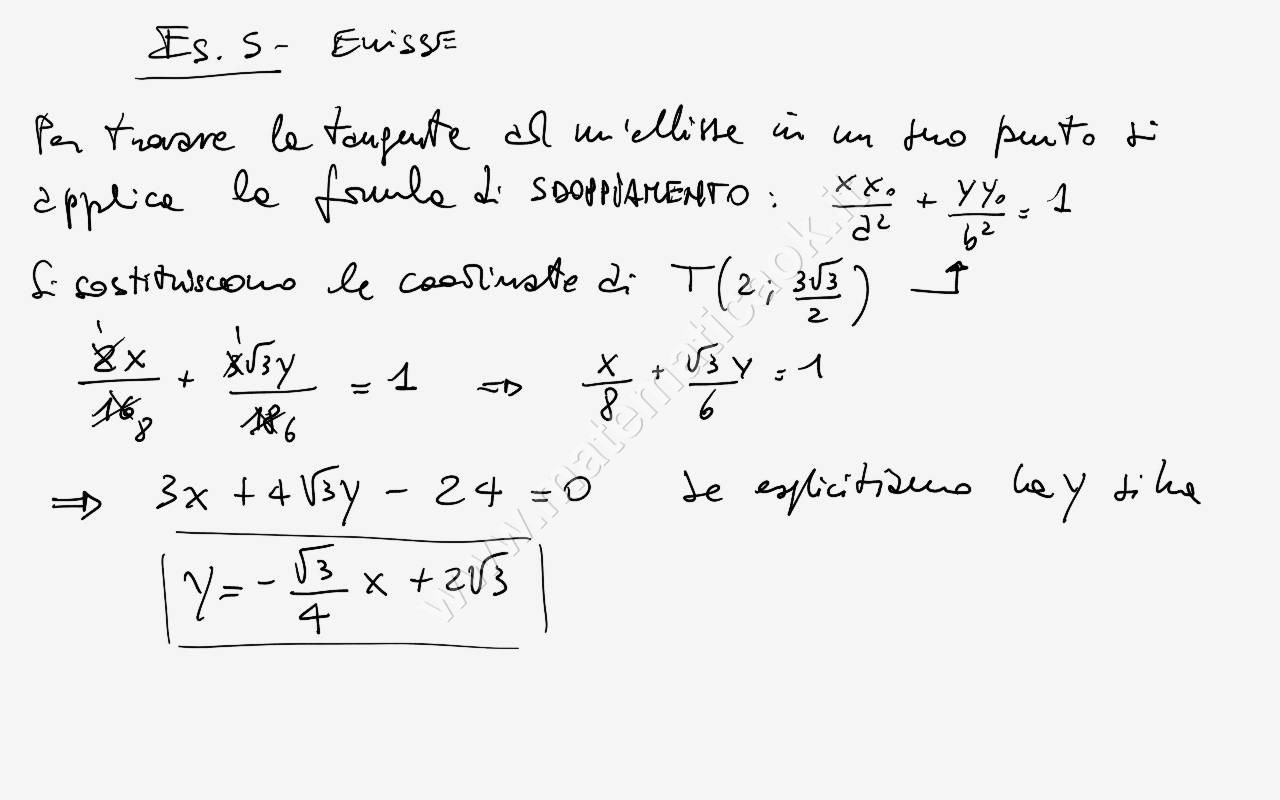 Es. 5 - Ellisse
Per trovare la tangente ad un'ellisse in un suo punto si
applica la formula di SDOPPIAMENTO: xx₀/a² + yy₀/b² = 1
Si sostituiscono le coordinate di T(2; 3√3/2)
2x/16 8 + 3√3y/18 6 = 1 ⇒ x/8 + √3y/6 = 1
⇒ 3x + 4√3y - 24 = 0 se esplicitiamo la y si ha
y = -√3/4 x + 2√3
www.matematicaok.it